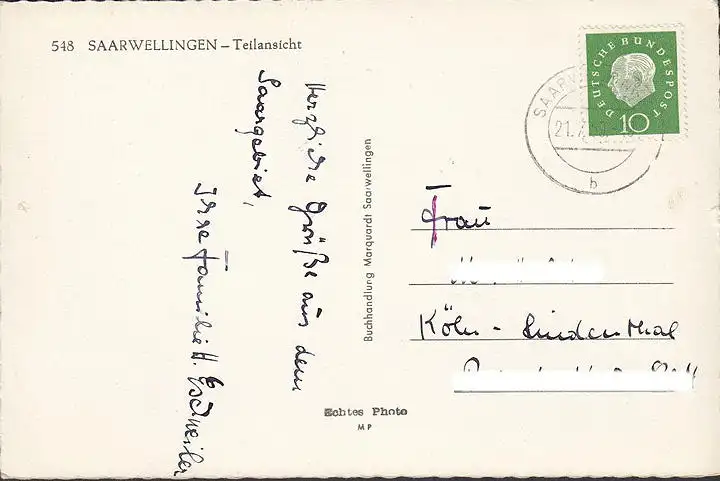 548 SAARWELLINGEN – Teilansicht
DEUTSCHE BUNDESPOST
10
SAARW
21.7
b
Herzliche Grüße aus dem
Saargebiet,
Ihre Familie H. Eschweiler
Buchhandlung Marquardt Saarwellingen
Frau
Köln - Lindenthal
Echtes Photo
MP